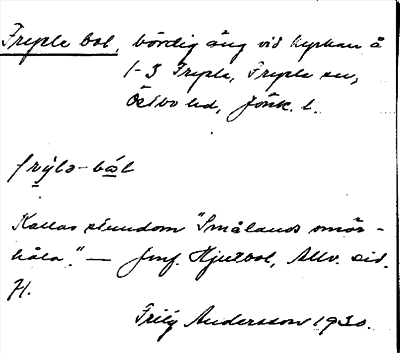 Fryele bol, bördig äng vid kyrkan å
1-3 Fryele, Fryele sn,
Östbo hd, Jönk. l.
frỳlə-bo̯l
Kallas stundom "Smålands smör-
håla." — Jmf. Hjutbol, Allv. sid.
71.
Frily Andersson 1930.